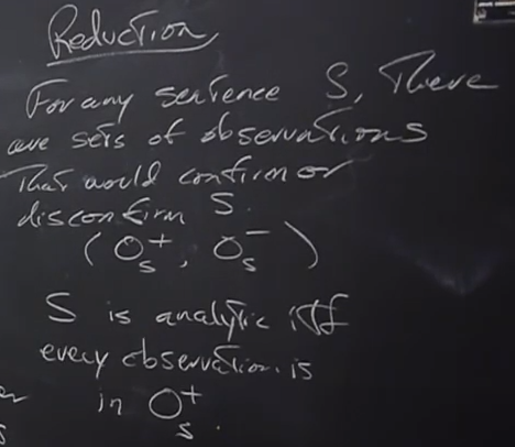 Reduction
For any sentence S, There
are sets of observations
That would confirm or
disconfirm S.
(O_s^+, O_s^-)
S is analytic iff
every observation is
in O_s^+.